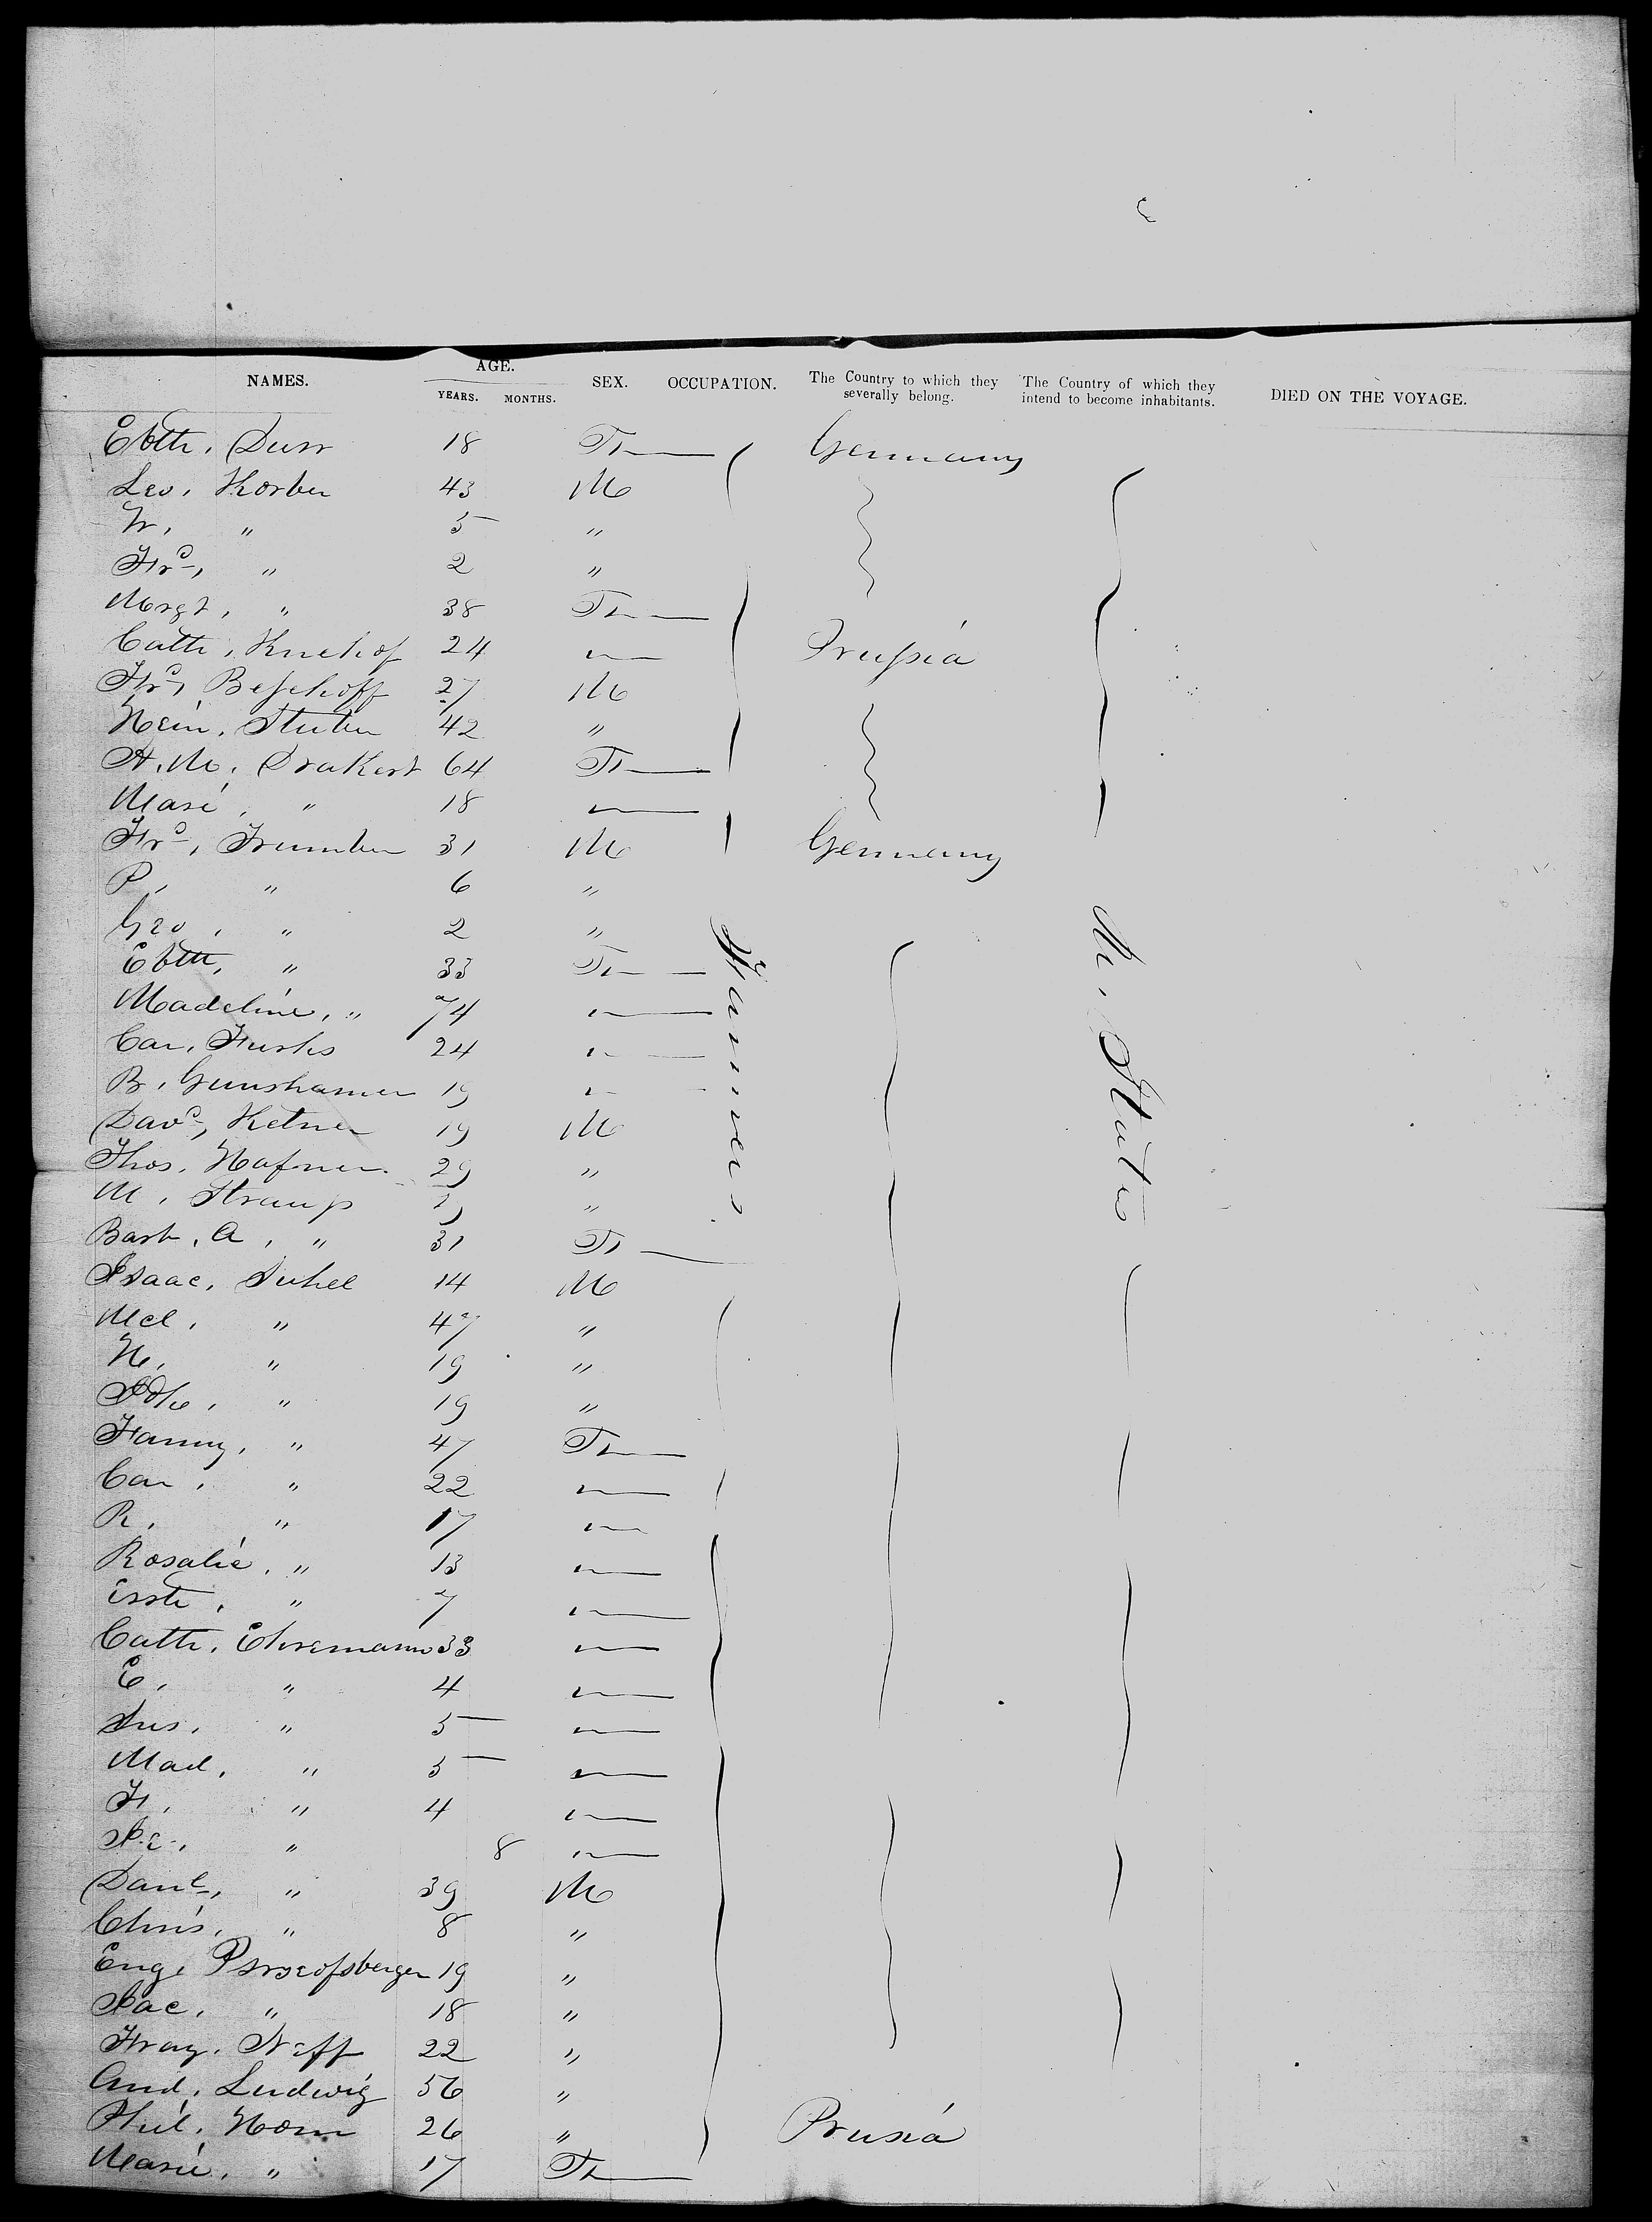 NAMES. AGE. YEARS. MONTHS. SEX. OCCUPATION. The Country to which they severally belong. The Country of which they intend to become inhabitants. DIED ON THE VOYAGE.
Ebth, Durr 18 F Germany
Leo, Korber 43 M
W, " 5 "
Frd, " 2 "
Mrgt, " 38 F
Cath, Kuckof 24 " Prussia
Frd, Beschoff 27 M
Hein, Stuber 42 "
A. M. Drakert 64 F
Marie, " 18 "
Frd, Trumber 31 M Germany
P, " 6 "
Geo, " 2 "
Ebth, " 33 F
Madeline, " 74 "
Car, Fuchs 24 "
B, Gunshamer 19 "
Davd, Ketner 19 M
Thos, Hafner 29 "
M, Straup "
Barb, A, " 31 F
Isaac, Suhel 14 M
Mcl, " 47 "
H, " 19 "
" 19 "
Fanny, " 47 F
Car, " 22 "
R, " 17 "
Rosalie, " 13 "
" 7 "
Cath, Ehremann 33 "
E, " 4 "
Sus, " 5 "
Mad, " 5 "
F, " 4 "
" 8 "
Danl, " 39 M
Chris, " 8 "
Eng, 19 "
Jac, " 18 "
Franz, Neff 22 "
And, Ludwig 56 "
Phil, Horn 26 " Prusia
Marie, " 17 F
Farmers
U. States